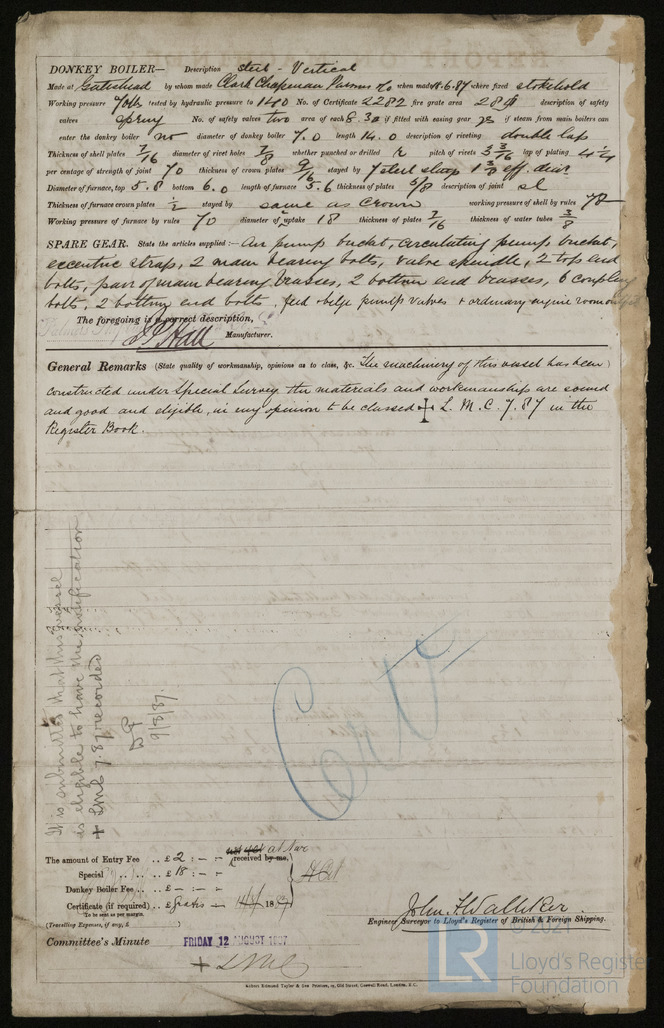 DONKEY BOILER— Description Steel - Vertical
Made at Gateshead by whom made Clark Chapman Parsons & Co when made 18.6.87 where fixed stokehold
Working pressure 70 lb tested by hydraulic pressure to 140 No. of Certificate 2282 fire grate area 28 description of safety
valves spring No. of safety valves two area of each 8.30 if fitted with easing gear yes if steam from main boilers can
enter the donkey boiler no diameter of donkey boiler 7.0 length 14.0 description of riveting double lap
Thickness of shell plates 7/16 diameter of rivet holes 7/8 whether punched or drilled pitch of rivets 3 3/16 lap of plating 4 1/4
per centage of strength of joint 70 thickness of crown plates 9/16 stayed by 7 steel stays 1 3/8 eff. diar
Diameter of furnace, top 5.8 bottom 6.0 length of furnace 5.6 thickness of plates 5/8 description of joint sl
Thickness of furnace crown plates 1/2 stayed by same as crown working pressure of shell by rules 78
Working pressure of furnace by rules 70 diameter of uptake 18 thickness of plates 7/16 thickness of water tubes 3/8
SPARE GEAR. State the articles supplied:— Air pump bucket, circulating pump bucket,
eccentric strap, 2 main bearing bolts, valve spindle, 2 top end
bolts, pair of main bearing brasses, 2 bottom end brasses, 6 coupling
bolts, 2 bottom end bolts, feed & bilge pump valves & ordinary engine room
The foregoing is a correct description,
Manufacturer.
General Remarks (State quality of workmanship, opinions as to class, &c. The machinery of this vessel has been
constructed under Special Survey the materials and workmanship are sound
and good and eligible, in my opinion to be classed + L.M.C. 7.87 in the
Register Book.
It is submitted that this vessel
is eligible to have the notification
+ LMC 7.87 recorded
9/8/87
The amount of Entry Fee .. £ 2 : – : – received by me,
Special .. £ 18 : – : –
Donkey Boiler Fee .. £ – : – : –
Certificate (if required) .. £ gratis – 18
To be sent as per margin.
(Travelling Expenses, if any, £ )
John F. Walliker
Engineer Surveyor to Lloyd's Register of British & Foreign Shipping.
Committee's Minute FRIDAY 12 AUGUST 1887
+ LMC
© 2021
LR
Lloyd's Register
Foundation